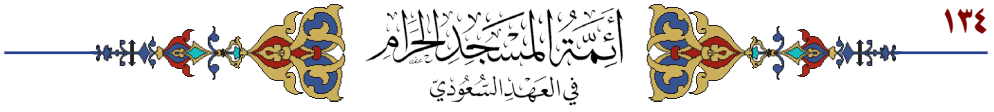 ١٣٤
أَئِمَّةُ المَسْجِدِ الحَرَامِ
فِي العَهْدِ السُّعُودِيّ